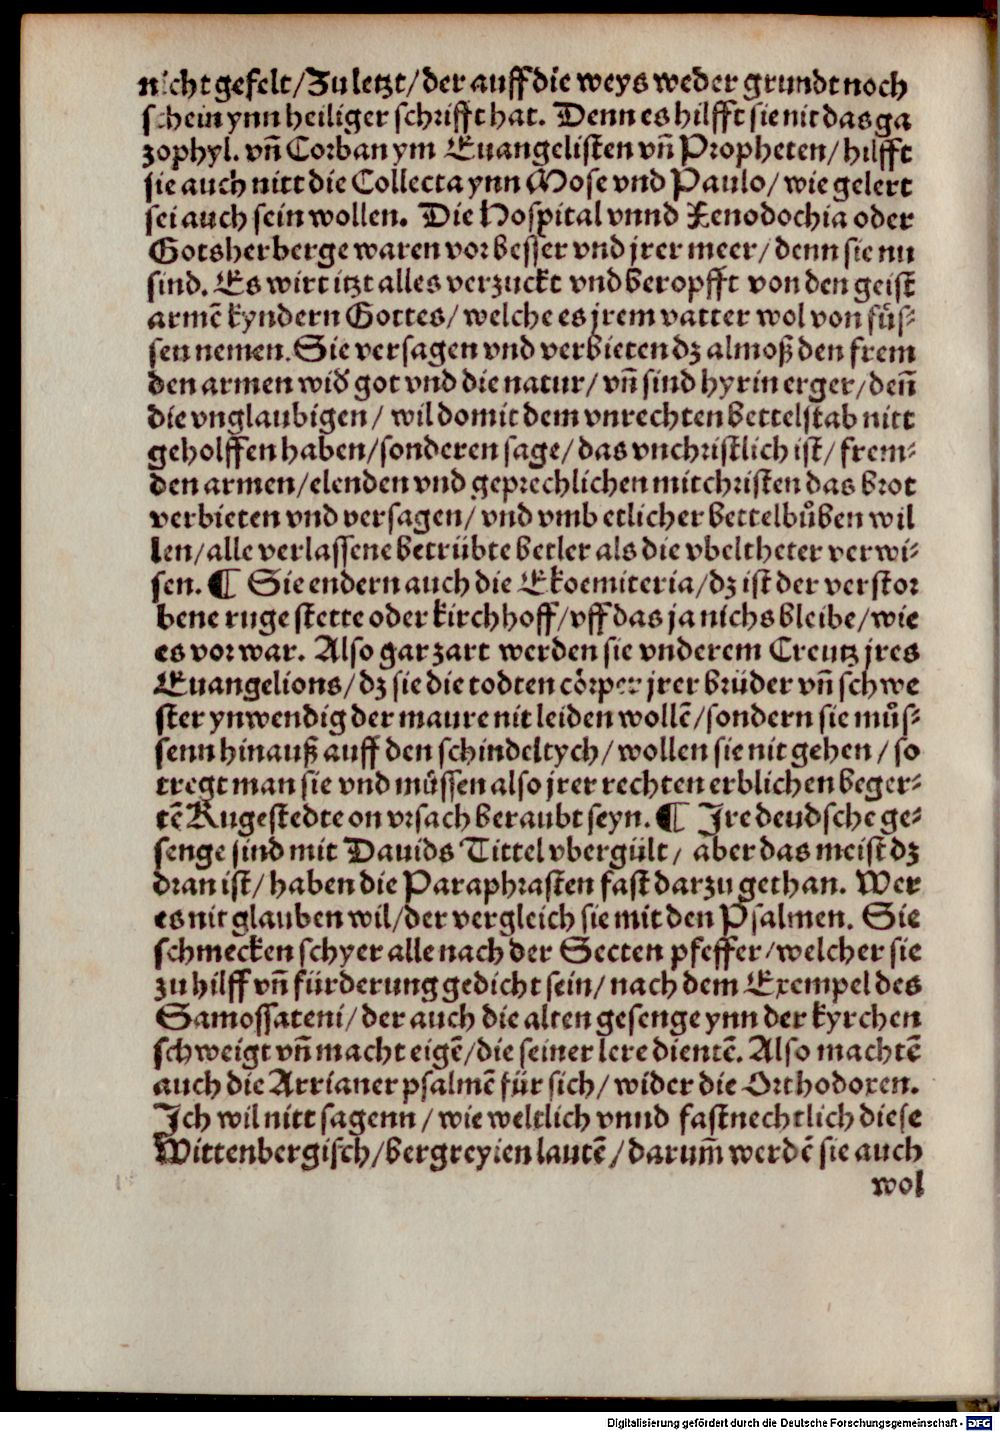 nicht gefelt/Zu letzt/der auff die weys weder grundt noch
schein ynn heiliger schrifft hat. Denn es hilfft sie nit das ga
zophyl. vñ Corban ym Euangelisten vñ Propheten/ hilfft
sie auch nitt die Collecta ynn Mose vnd Paulo/ wie gelert
sei auch sein wollen. Die Hospital vnnd Xenodochia oder
Gotsherberge waren vor besser vnd jrer meer/ denn sie nu
sind. Es wirt itzt alles verzuckt vnd beropfft von den geist
armē kyndern Gottes/ welche es jrem vatter wol von füs⸗
sen nemen. Sie versagen vnd verbieten dz almoß den frem
den armen wid̕ got vnd die natur/ vñ sind hyrin erger/ den̄
die vnglaubigen/ wil domit dem vnrechten bettelstab nitt
geholffen haben/sonderen sage/ das vnchristlich ist/ frem⸗
den armen/elenden vnd geprechlichen mitchristen das brot
verbieten vnd versagen/ vnd vmb etlicher bettelbůben wil
len/alle verlassene betrübte betler als die vbeltheter verwi⸗
sen. ¶ Sie endern auch die Ekoemiteria/dz ist der verstor
bene ruge stette oder kirchhoff/vff das ja nichs bleibe/wie
es vor war. Also gar zart werden sie vnderem Creutz jres
Euangelions/dz sie die todten cörper jrer brüder vñ schwe
ster ynwendig der maure nit leiden wollē/sondern sie můs⸗
senn hinauß auff den schindeltych/ wollen sie nit gehen/ so
tregt man sie vnd müssen also jrer rechten erblichen beger⸗
tē Rugestedte on vrsach beraubt seyn. ¶ Jre deudsche ge⸗
senge sind mit Dauids Tittel vbergült/ aber das meist dz
dran ist/ haben die Paraphrasten fast darzu gethan. Wer
es nit glauben wil/der vergleich sie mit den Psalmen. Sie
schmecken schyer alle nach der Secten pfeffer/welcher sie
zu hilff vñ fürderung gedicht sein/ nach dem Exempel des
Samossateni/ der auch die alten gesenge ynn der kyrchen
schweigt vñ macht eigē/die seiner lere dientē. Also machtē
auch die Arrianer psalmē für sich/ wider die Orthodoxen.
Jch wil nitt sagenn/ wie weltlich vnnd fastnechtlich diese
Wittenbergisch/bergreyien lautē/ darum̄ werdē sie auch
wol
Digitalisierung gefördert durch die Deutsche Forschungsgemeinschaft - DFG